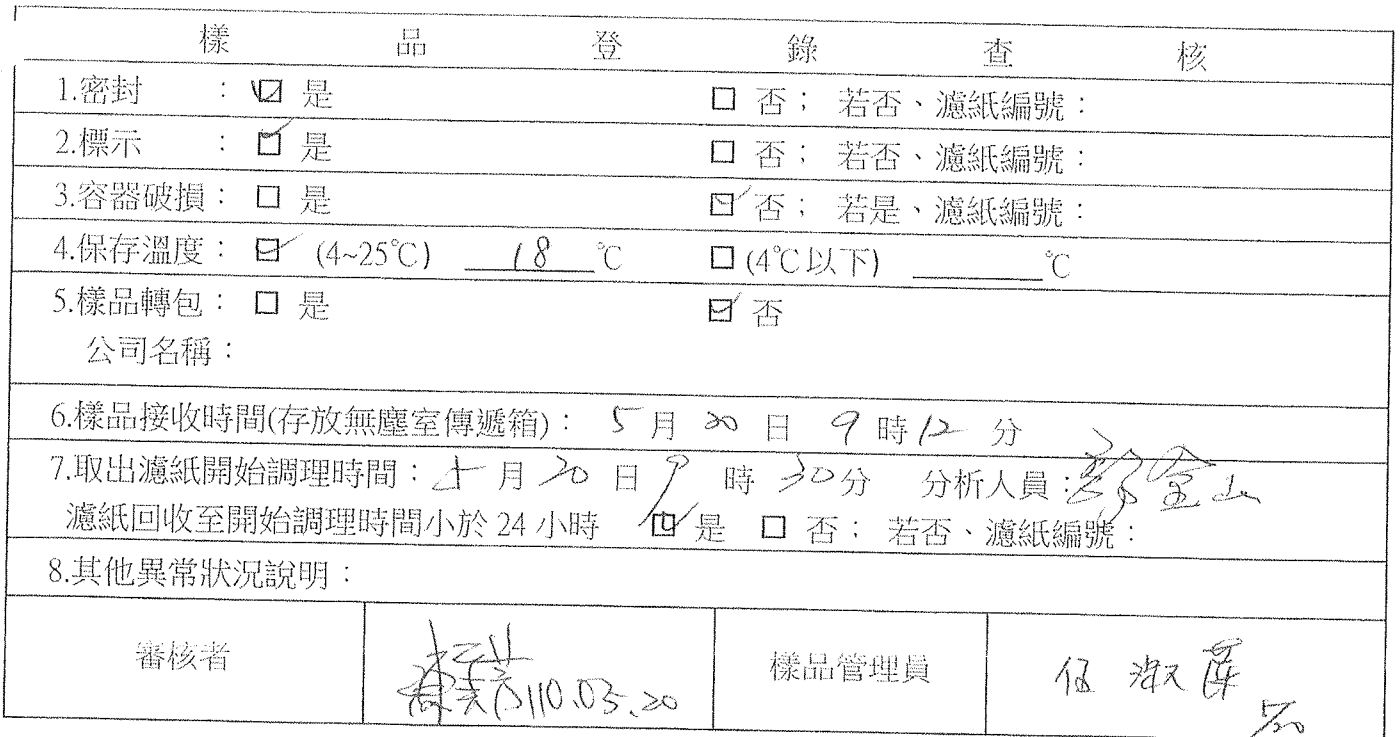 樣品登錄查核
1.密封 : ☑ 是 □ 否； 若否、濾紙編號：
2.標示 : ☑ 是 □ 否； 若否、濾紙編號：
3.容器破損： □ 是 ☑ 否； 若是、濾紙編號：
4.保存溫度： ☑ (4~25℃) 18 ℃ □ (4℃以下) ______℃
5.樣品轉包： □ 是 ☑ 否
公司名稱：
6.樣品接收時間(存放無塵室傳遞箱)： 5 月 20 日 9 時 12 分
7.取出濾紙開始調理時間： 月 20 日 9 時 30 分 分析人員： 金山
濾紙回收至開始調理時間小於 24 小時 ☑ 是 □ 否； 若否、濾紙編號：
8.其他異常狀況說明：
審核者 110.05.20 樣品管理員 伍淑萍
5/20